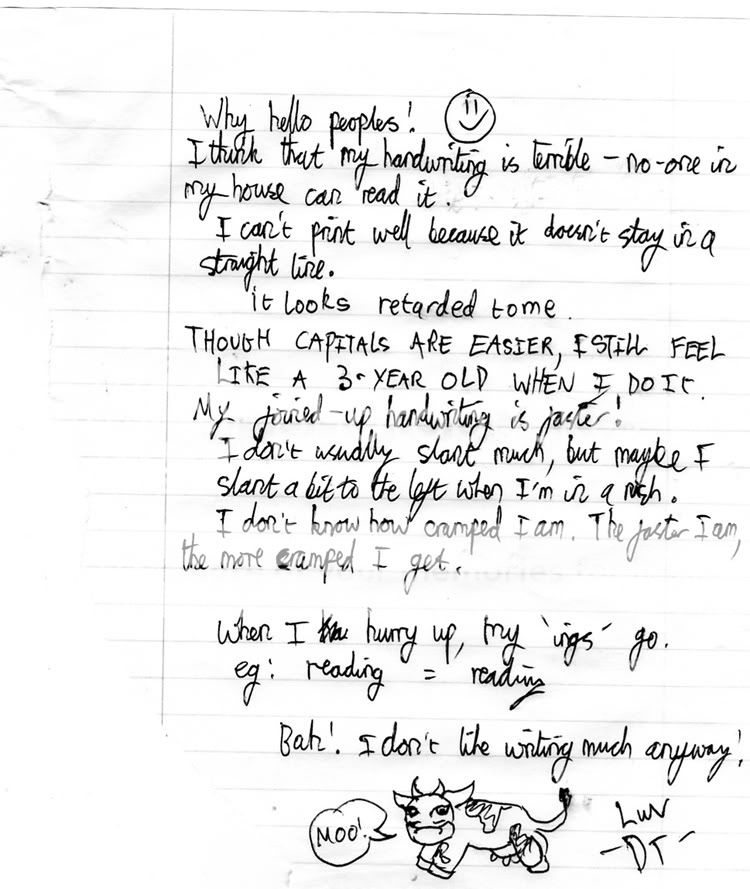 Why hello peoples!
I think that my handwriting is terrible – no-one in
my house can read it.
I can't print well because it doesn't stay in a
straight line.
it looks retarded to me.
THOUGH CAPITALS ARE EASIER, I STILL FEEL
LIKE A 3-YEAR OLD WHEN I DO IT.
My joined-up handwriting is faster!
I don't usually slant much, but maybe I
slant a bit to the left when I'm in a rush.
I don't know how cramped I am. The faster I am,
the more cramped I get.
When I hurry up, my 'ings' go.
eg: reading = reading
Bah! I don't like writing much anyway!
MOO!
Luv
-DT-